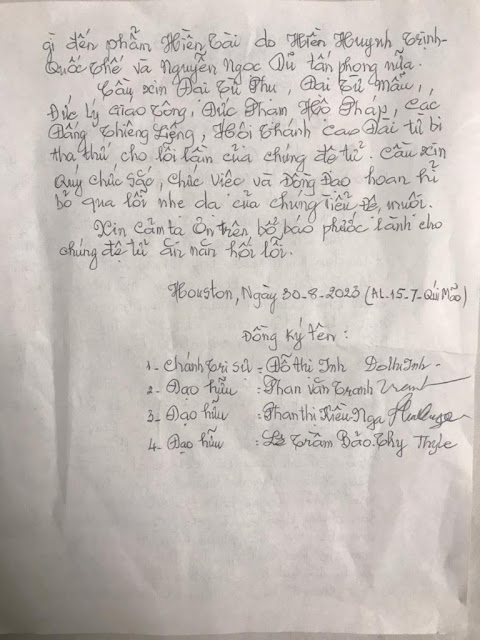 gì đến phẩm Hiền Tài do Hiền Huynh Trịnh-
Quốc Thế và Nguyễn Ngọc Dũ tấn phong nữa.
Cầu xin Đại Từ Phụ, Đại Từ Mẫu,
Đức Lý Giáo Tông, Đức Phạm Hộ Pháp, Các
Đấng Thiêng Liêng, Hội Thánh Cao Đài từ bi
tha thứ cho lỗi lầm của chúng đệ tử. Cầu xin
Quý chức sắc, chức việc và Đồng Đạo hoan hỉ
bỏ qua lỗi nhẹ dạ của chúng Tiểu Đệ, muội.
Xin cảm tạ Ơn trên bố báo phước lành cho
chúng đệ tử ăn năn hối lỗi.
Houston, Ngày 30-8-2023 (AL-15-7-Quí Mão)
Đồng ký tên:
1- Chánh Trị sự = Đỗ thị Inh DoThiInh-
2- Đạo hữu : Phan văn Tranh
3- Đạo hữu : Phan thị Kiều Nga
4- Đạo hữu : Lê Trầm Bảo Thy Thyle